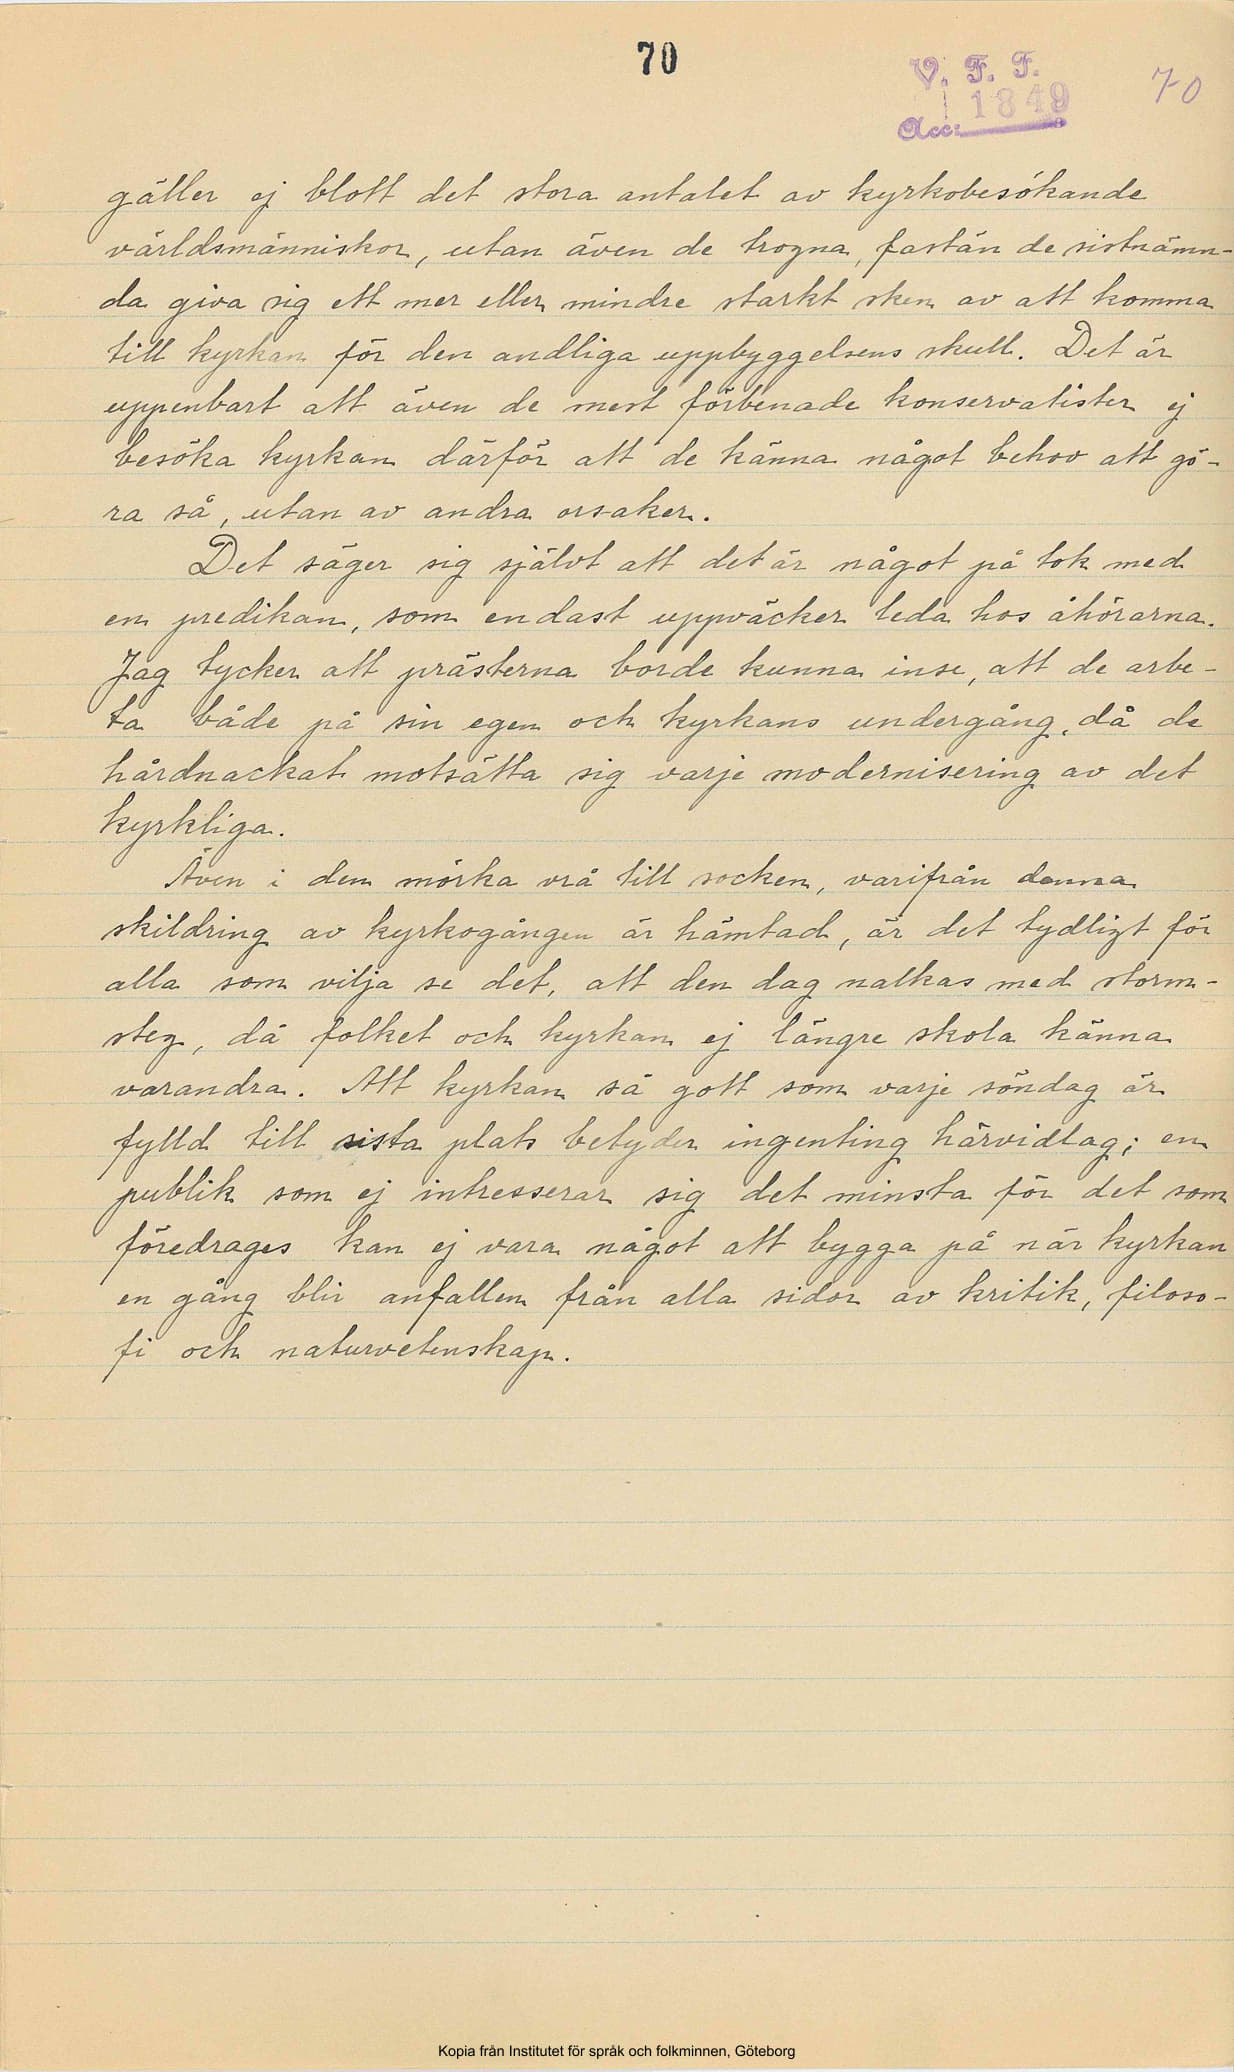 70
V. F. F.
70
1849
Acc:
gäller ej blott det stora antalet av kyrkobesökande
världsmänniskor, utan även de trogna, fastän de sistnämn-
da giva sig ett mer eller mindre starkt sken av att komma
till kyrkan för den andliga uppbyggelsens skull. Det är
uppenbart att även de mest förbenade konservatister ej
besöka kyrkan därför att de känna något behov att gö-
ra så, utan av andra orsaker.
Det säger sig självt att det är något på tok med
en predikan, som endast uppväcker leda hos åhörarna.
Jag tycker att prästerna borde kunna inse, att de arbe-
ta både på sin egen och kyrkans undergång, då de
hårdnackat motsätta sig varje modernisering av det
kyrkliga.
Även i den mörka vrå till socken, varifrån denna
skildring av kyrkogången är hämtad, är det tydligt för
alla som vilja se det, att den dag nalkas med storm-
steg, då folket och kyrkan ej längre skola känna
varandra. Att kyrkan så gott som varje söndag är
fylld till sista plats betyder ingenting härvidlag; en
publik som ej intresserar sig det minsta för det som
föredrages kan ej vara något att bygga på när kyrkan
en gång blir anfallen från alla sidor av kritik, filoso-
fi och naturvetenskap.
Kopia från Institutet för språk och folkminnen, Göteborg